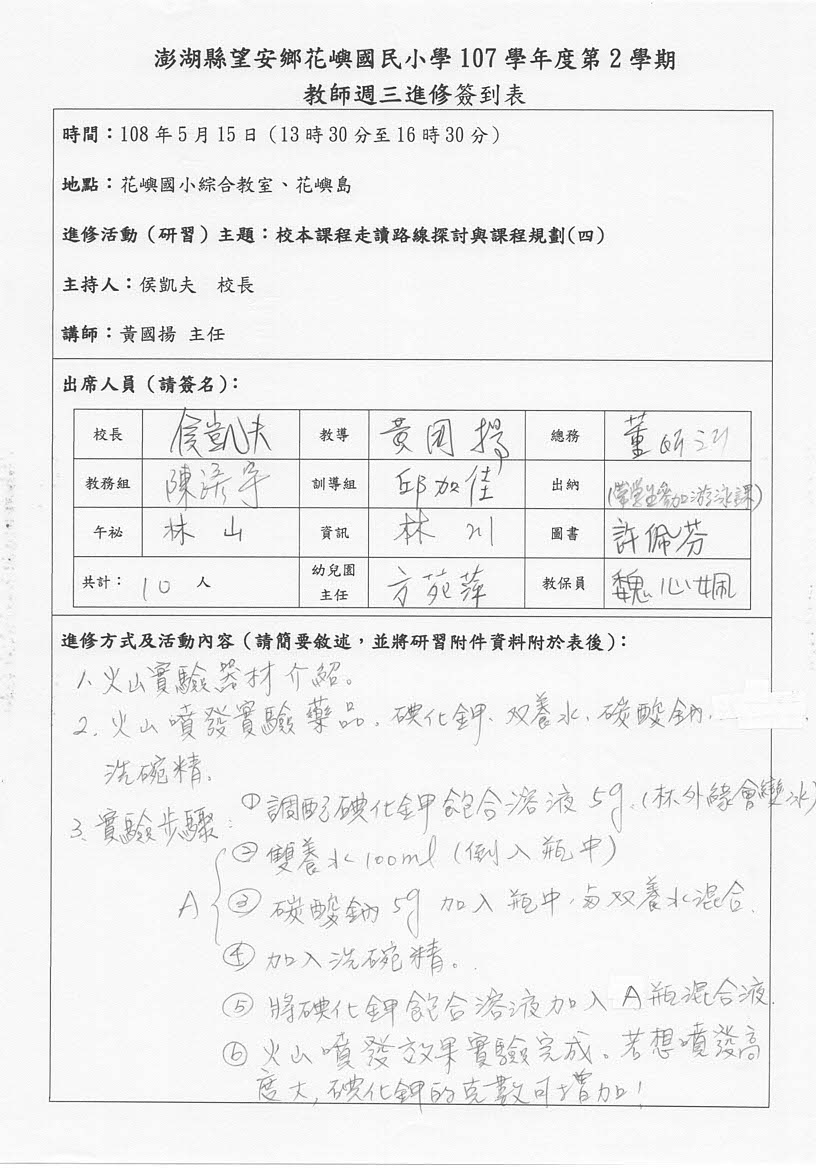 澎湖縣望安鄉花嶼國民小學 107 學年度第 2 學期
教師週三進修簽到表
時間：108 年 5 月 15 日（13 時 30 分至 16 時 30 分）
地點：花嶼國小綜合教室、花嶼島
進修活動（研習）主題：校本課程走讀路線探討與課程規劃(四)
主持人：侯凱夫 校長
講師：黃國揚 主任
出席人員（請簽名）：
校長 侯凱夫 教導 黃国揚 總務 董
教務組 陳 訓導組 邱加佳 出納 (帶學生參加游泳課)
午祕 林山 資訊 林川 圖書 許佩芬
共計： 10 人 幼兒園主任 方苑萍 教保員 魏心姵
進修方式及活動內容（請簡要敘述，並將研習附件資料附於表後）：
1、火山實驗器材介紹。
2、火山噴發實驗藥品。碘化鉀、双養水、碳酸鈉、
洗碗精。
3、實驗步驟：①調配碘化鉀飽合溶液5g、(杯外緣會變冰)
②雙養水100ml (倒入瓶中)
A ③碳酸鈉5g 加入瓶中，與双養水混合.
④加入洗碗精。
⑤將碘化鉀飽合溶液加入A瓶混合液.
⑥火山噴發效果實驗完成。若想噴發高
度大，碘化鉀的克數可增加！